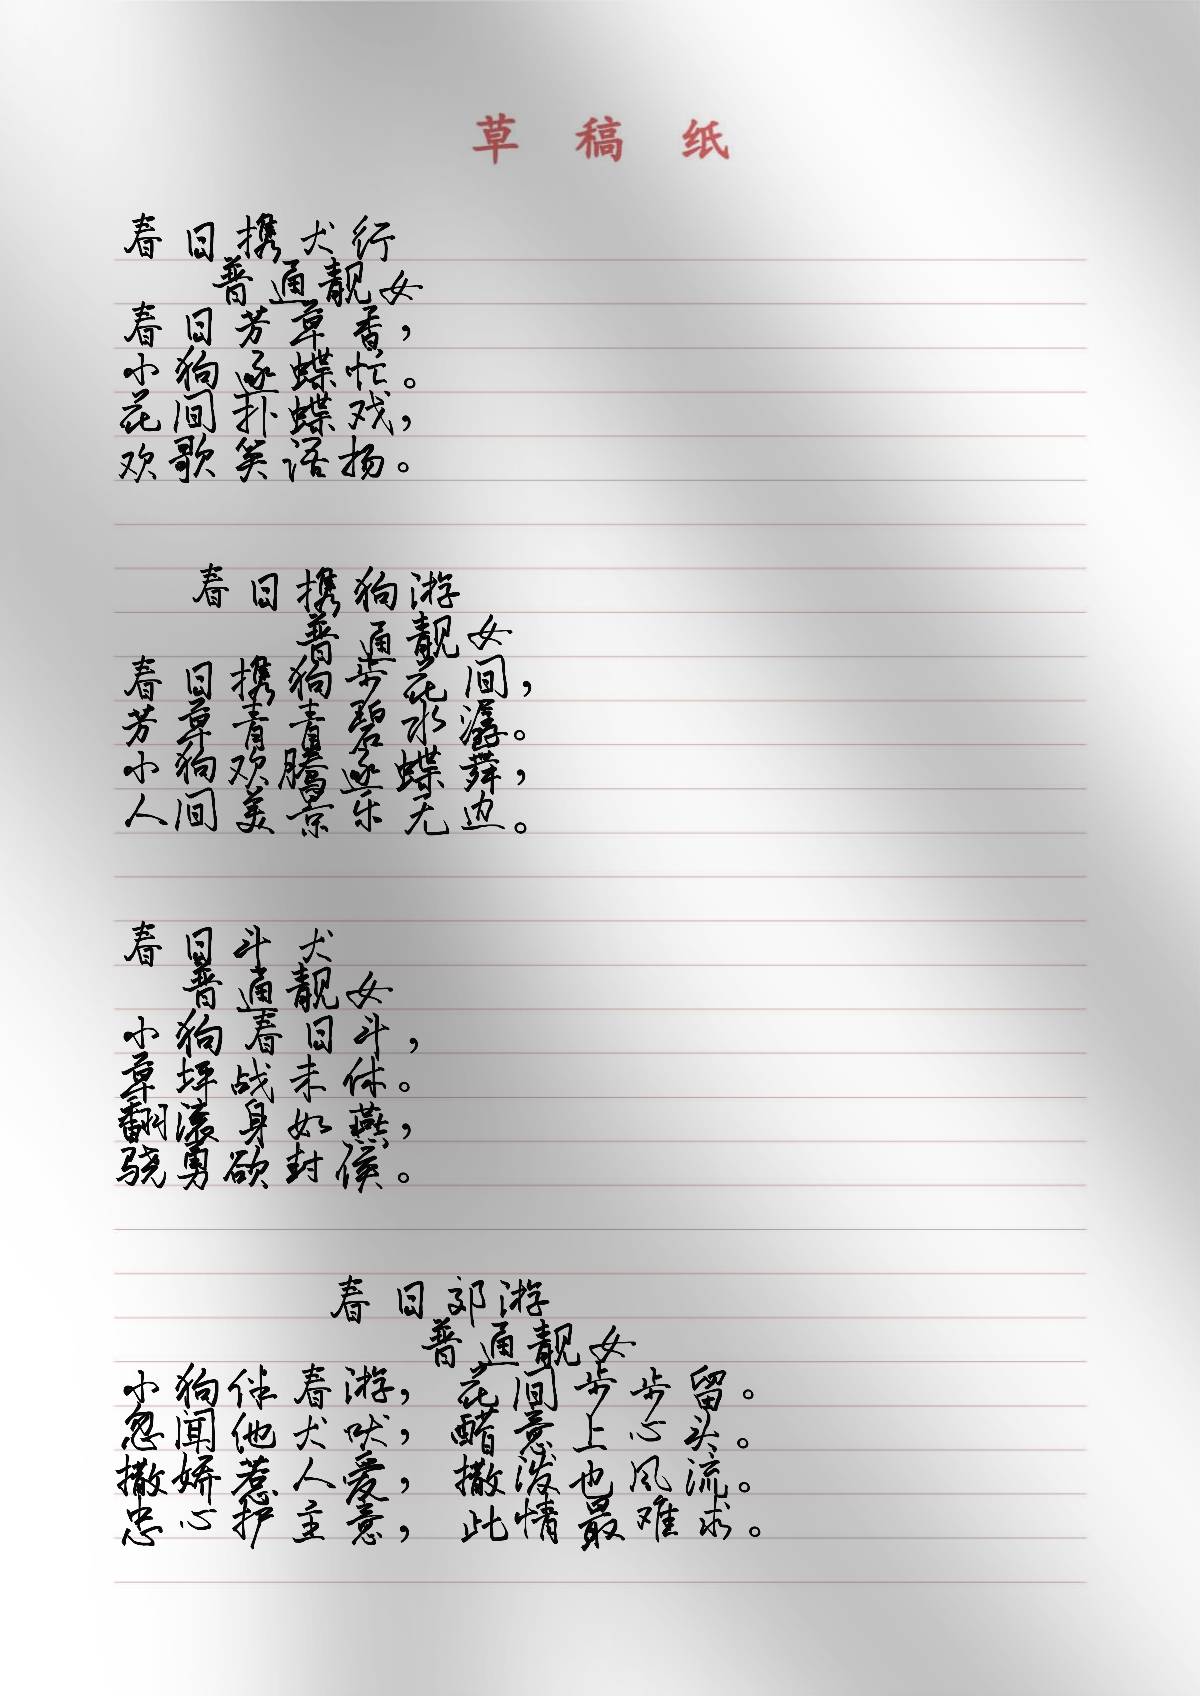 草稿纸
春日携犬行
普通靓女
春日芳草香，
小狗逐蝶忙。
花间扑蝶戏，
欢歌笑语扬。
春日携狗游
普通靓女
春日携狗步花间，
芳草青青碧水潺。
小狗欢腾逐蝶舞，
人间美景乐无边。
春日斗犬
普通靓女
小狗春日斗，
草坪战未休。
翻滚身如燕，
骁勇欲封侯。
春日郊游
普通靓女
小狗伴春游，花间步步留。
忽闻他犬吠，醋意上心头。
撒娇惹人爱，撒泼也风流。
忠心护主意，此情最难求。